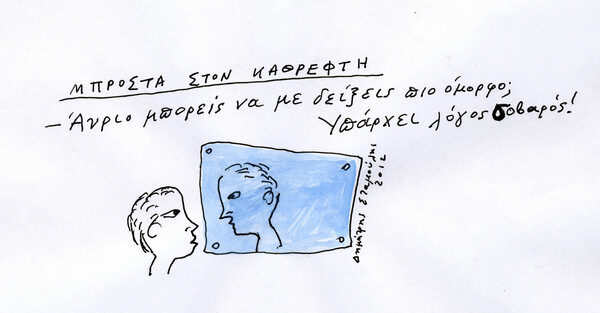 ΜΠΡΟΣΤΑ ΣΤΟΝ ΚΑΘΡΕΦΤΗ
– Αύριο μπορείς να με δείξεις πιο όμορφο;
Υπάρχει λόγος σοβαρός!
Δημήτρης Σταμούλης
2012